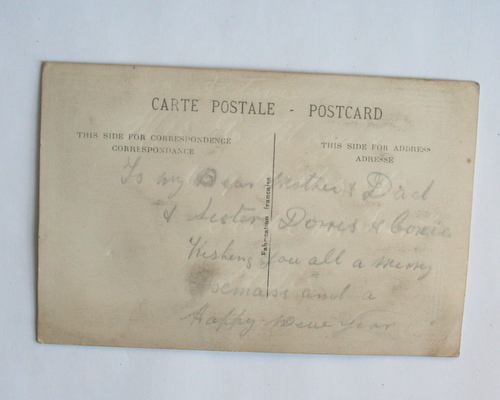 CARTE POSTALE - POSTCARD
THIS SIDE FOR CORRESPONDENCE
CORRESPONDANCE
THIS SIDE FOR ADDRESS
ADRESSE
Fabrication française
To my Dear Mother & Dad
& Sister Dorris &
Wishing you all a merry
and a
Happy New Year